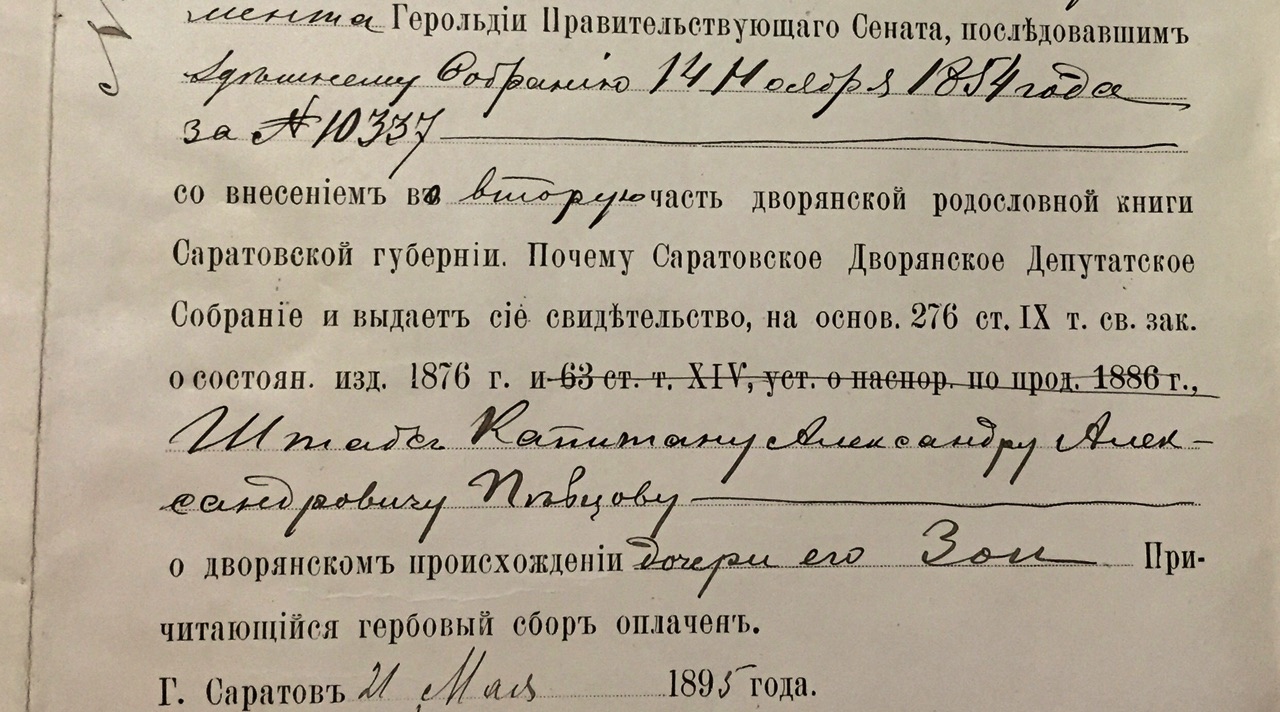 мента Герольдіи Правительствующаго Сената, послѣдовавшимъ
здѣшнему Собранію 14 Ноября 1854 года
за № 10337
со внесеніемъ во вторую часть дворянской родословной книги
Саратовской губерніи. Почему Саратовское Дворянское Депутатское
Собраніе и выдаетъ сіе свидѣтельство, на основ. 276 ст. IX т. св. зак.
о состоян. изд. 1876 г. и 63 ст. т. XIV, уст. о паспор. по прод. 1886 г.,
Штабсъ Капитану Александру Алек-
сандровичу Пѣвцову
о дворянскомъ происхожденіи дочери его Зои При-
читающійся гербовый сборъ оплаченъ.
Г. Саратовъ 21 Мая 1895 года.